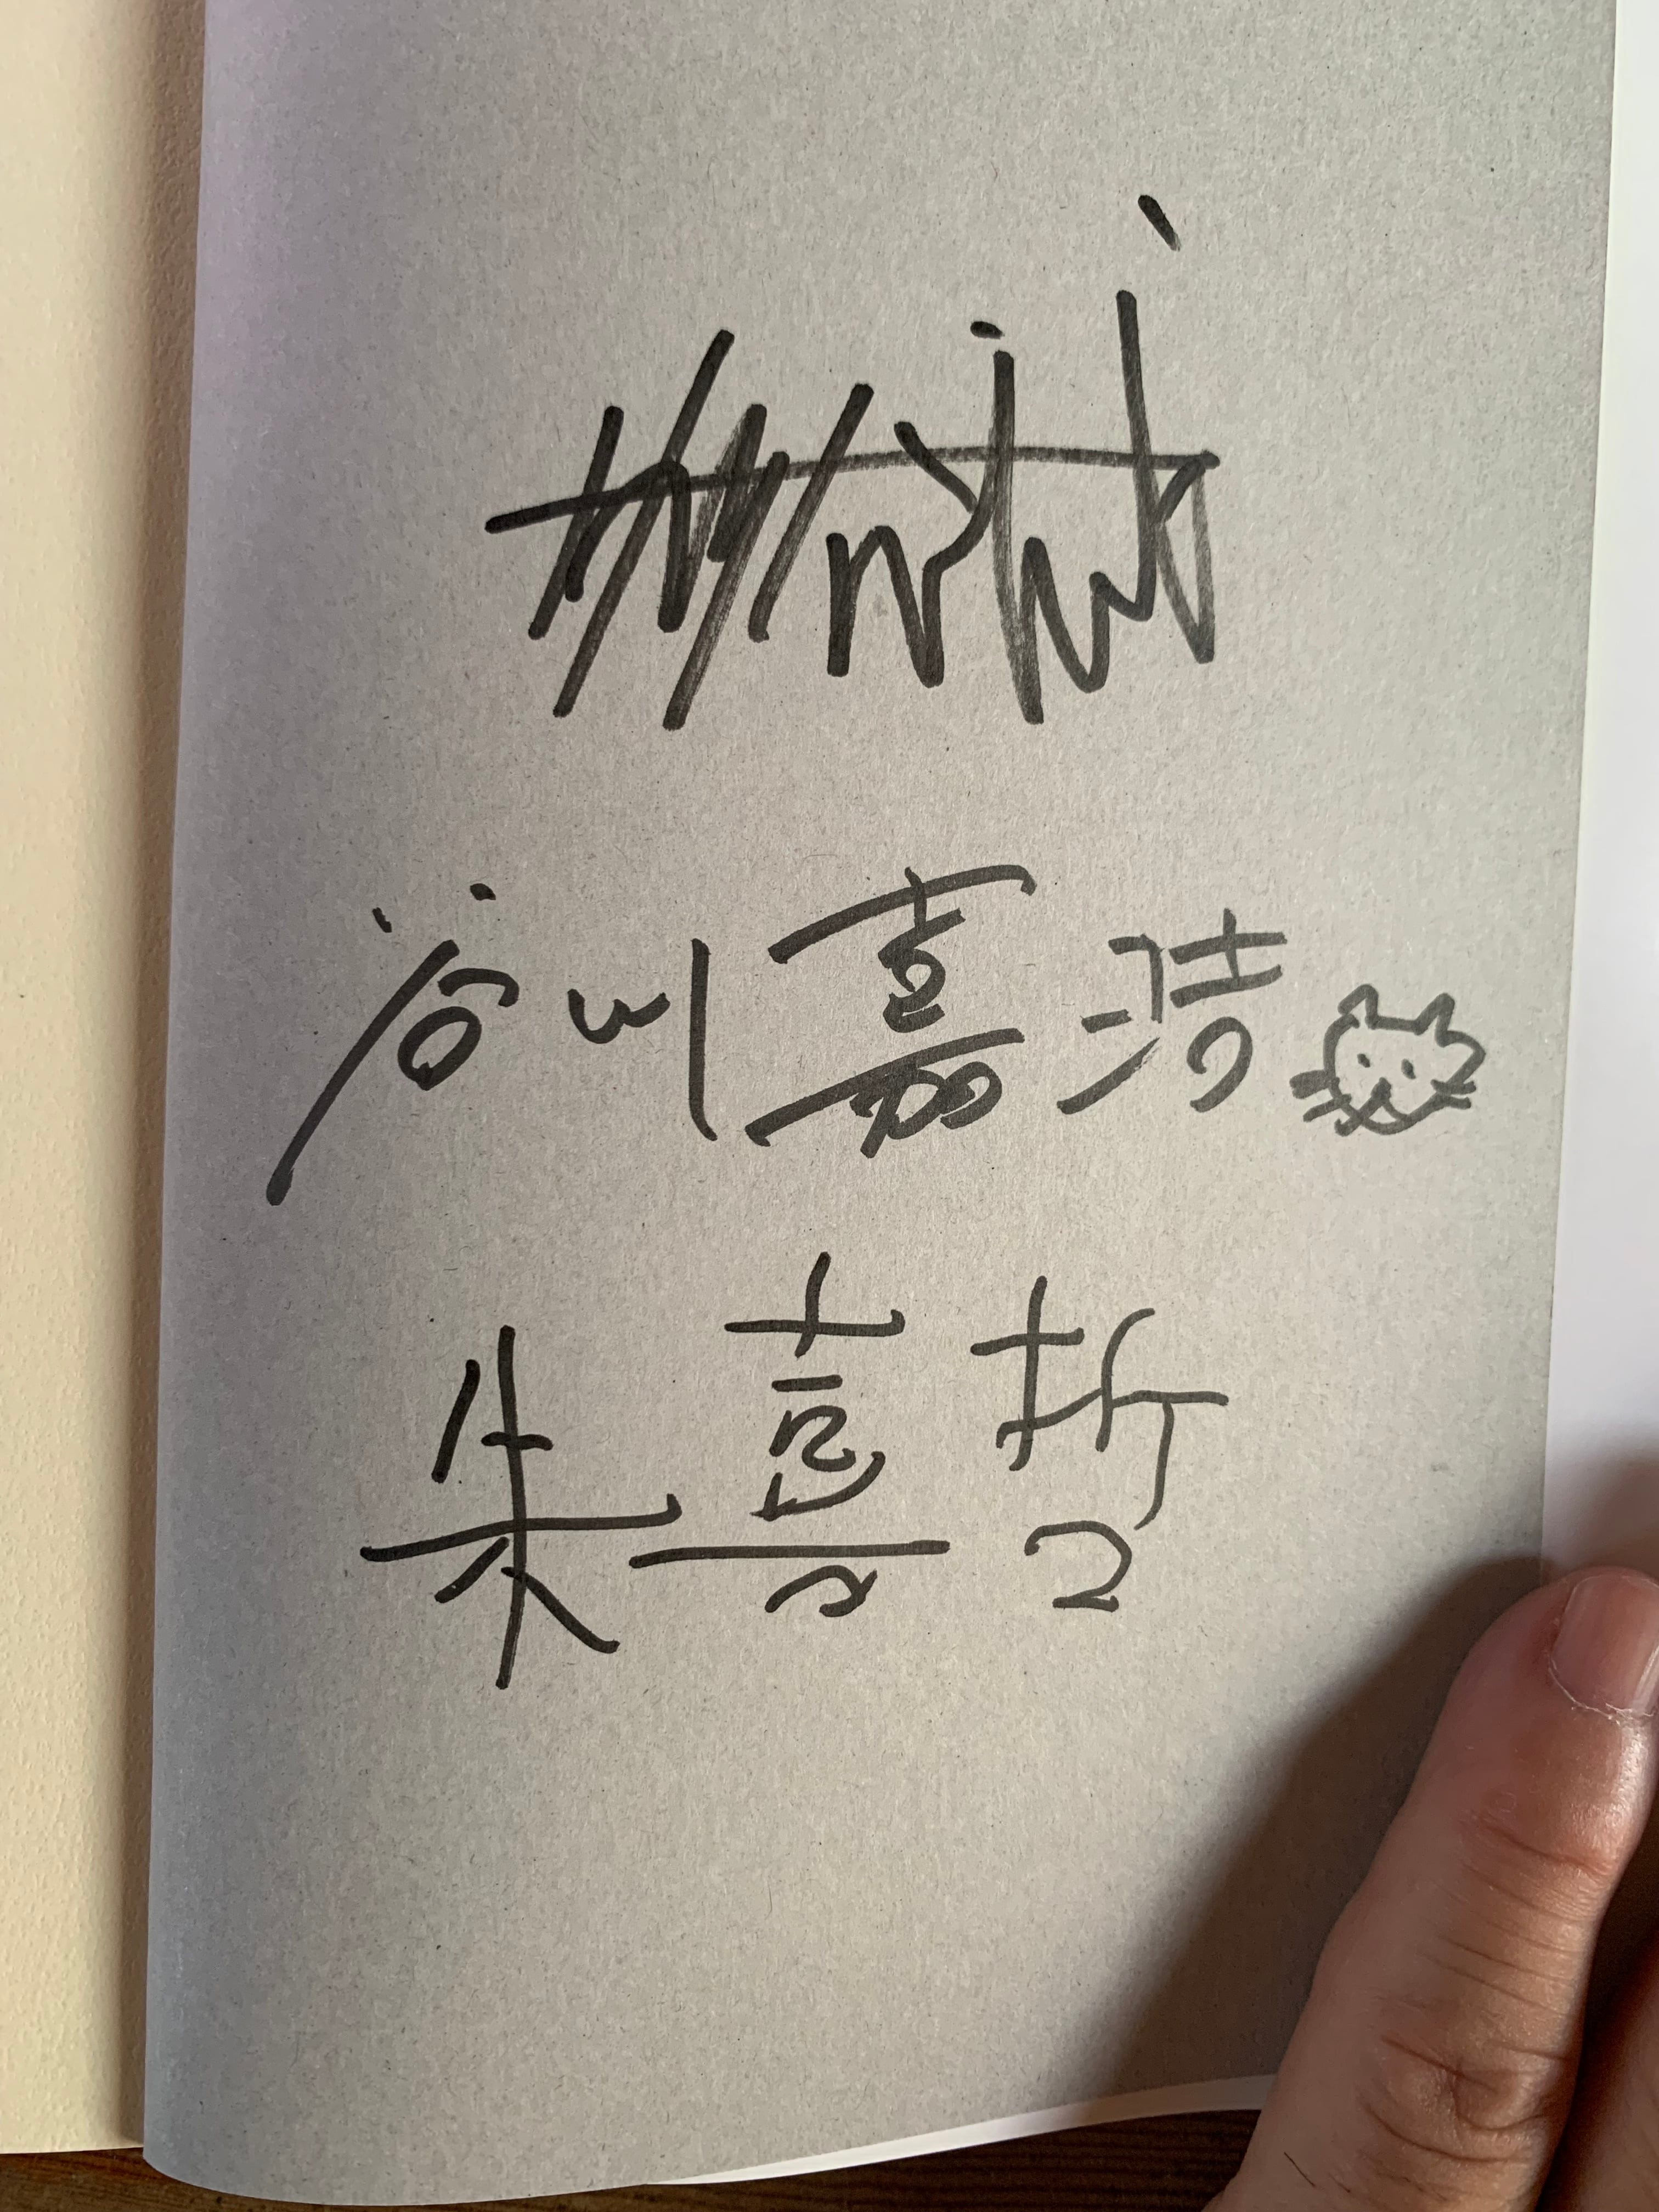 谷川嘉浩
朱喜哲